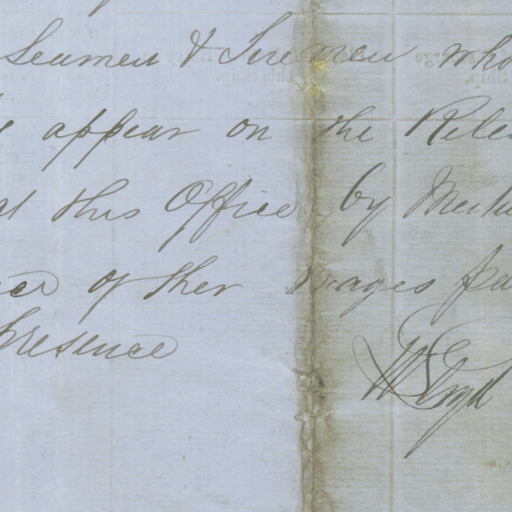 Seamen & Firemen who
appear on the Rele
at this Office by
of their Wages pa
presence